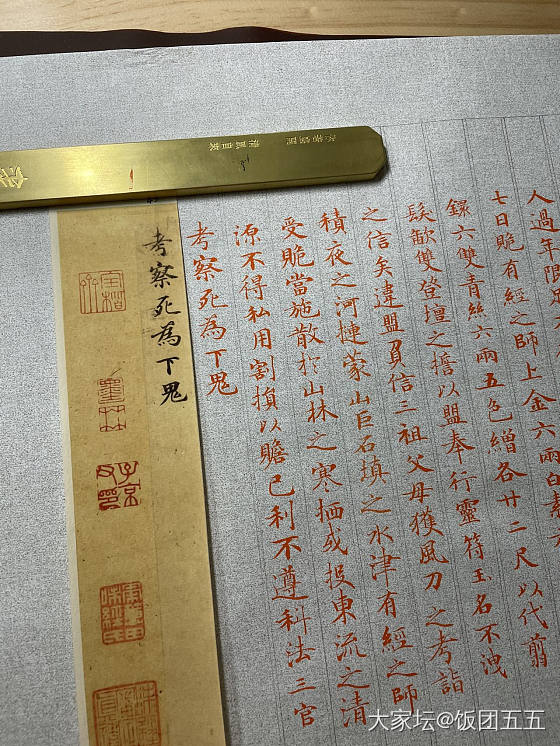 人過年限
七日䞈有經之師上金六兩白素六
鐶六雙青絲六兩五色繒各廿二尺以代翦
髮歃雙登壇之誓以盟奉行靈符玉名不洩
之信矣違盟負信三祖父母獲風刀之考詣
積夜之河揵蒙山巨石填之水津有經之師
受䞈當施散於山林之寒栖或投東流之清
源不得私用割損以贍己利不遵科法三官
考察死為下鬼
考察死為下鬼
大家坛@饭团五五